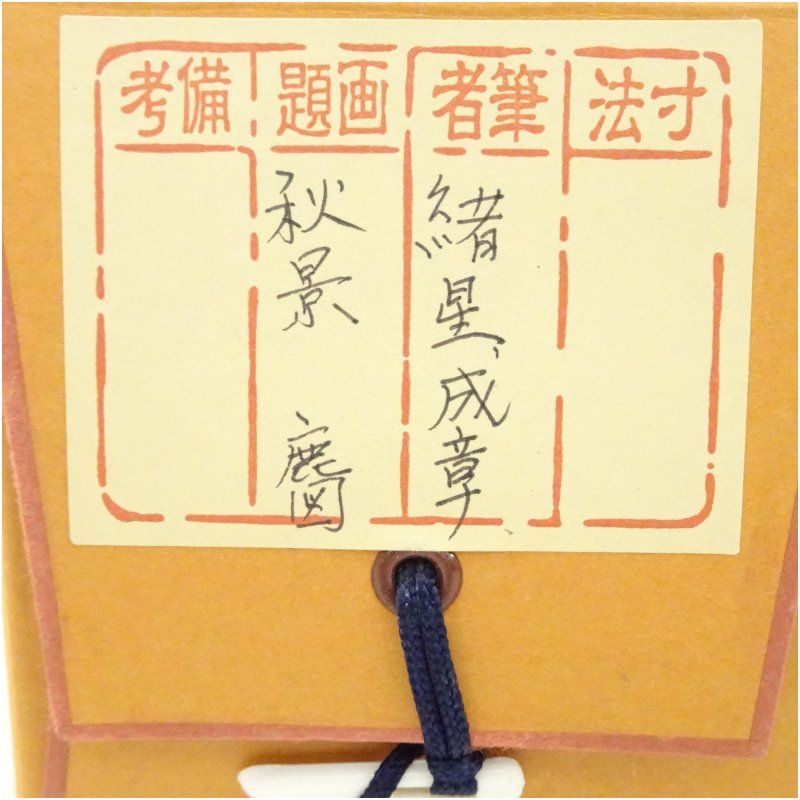 寸法
筆者
緒星、成章
画題
秋景 鹿図
備考